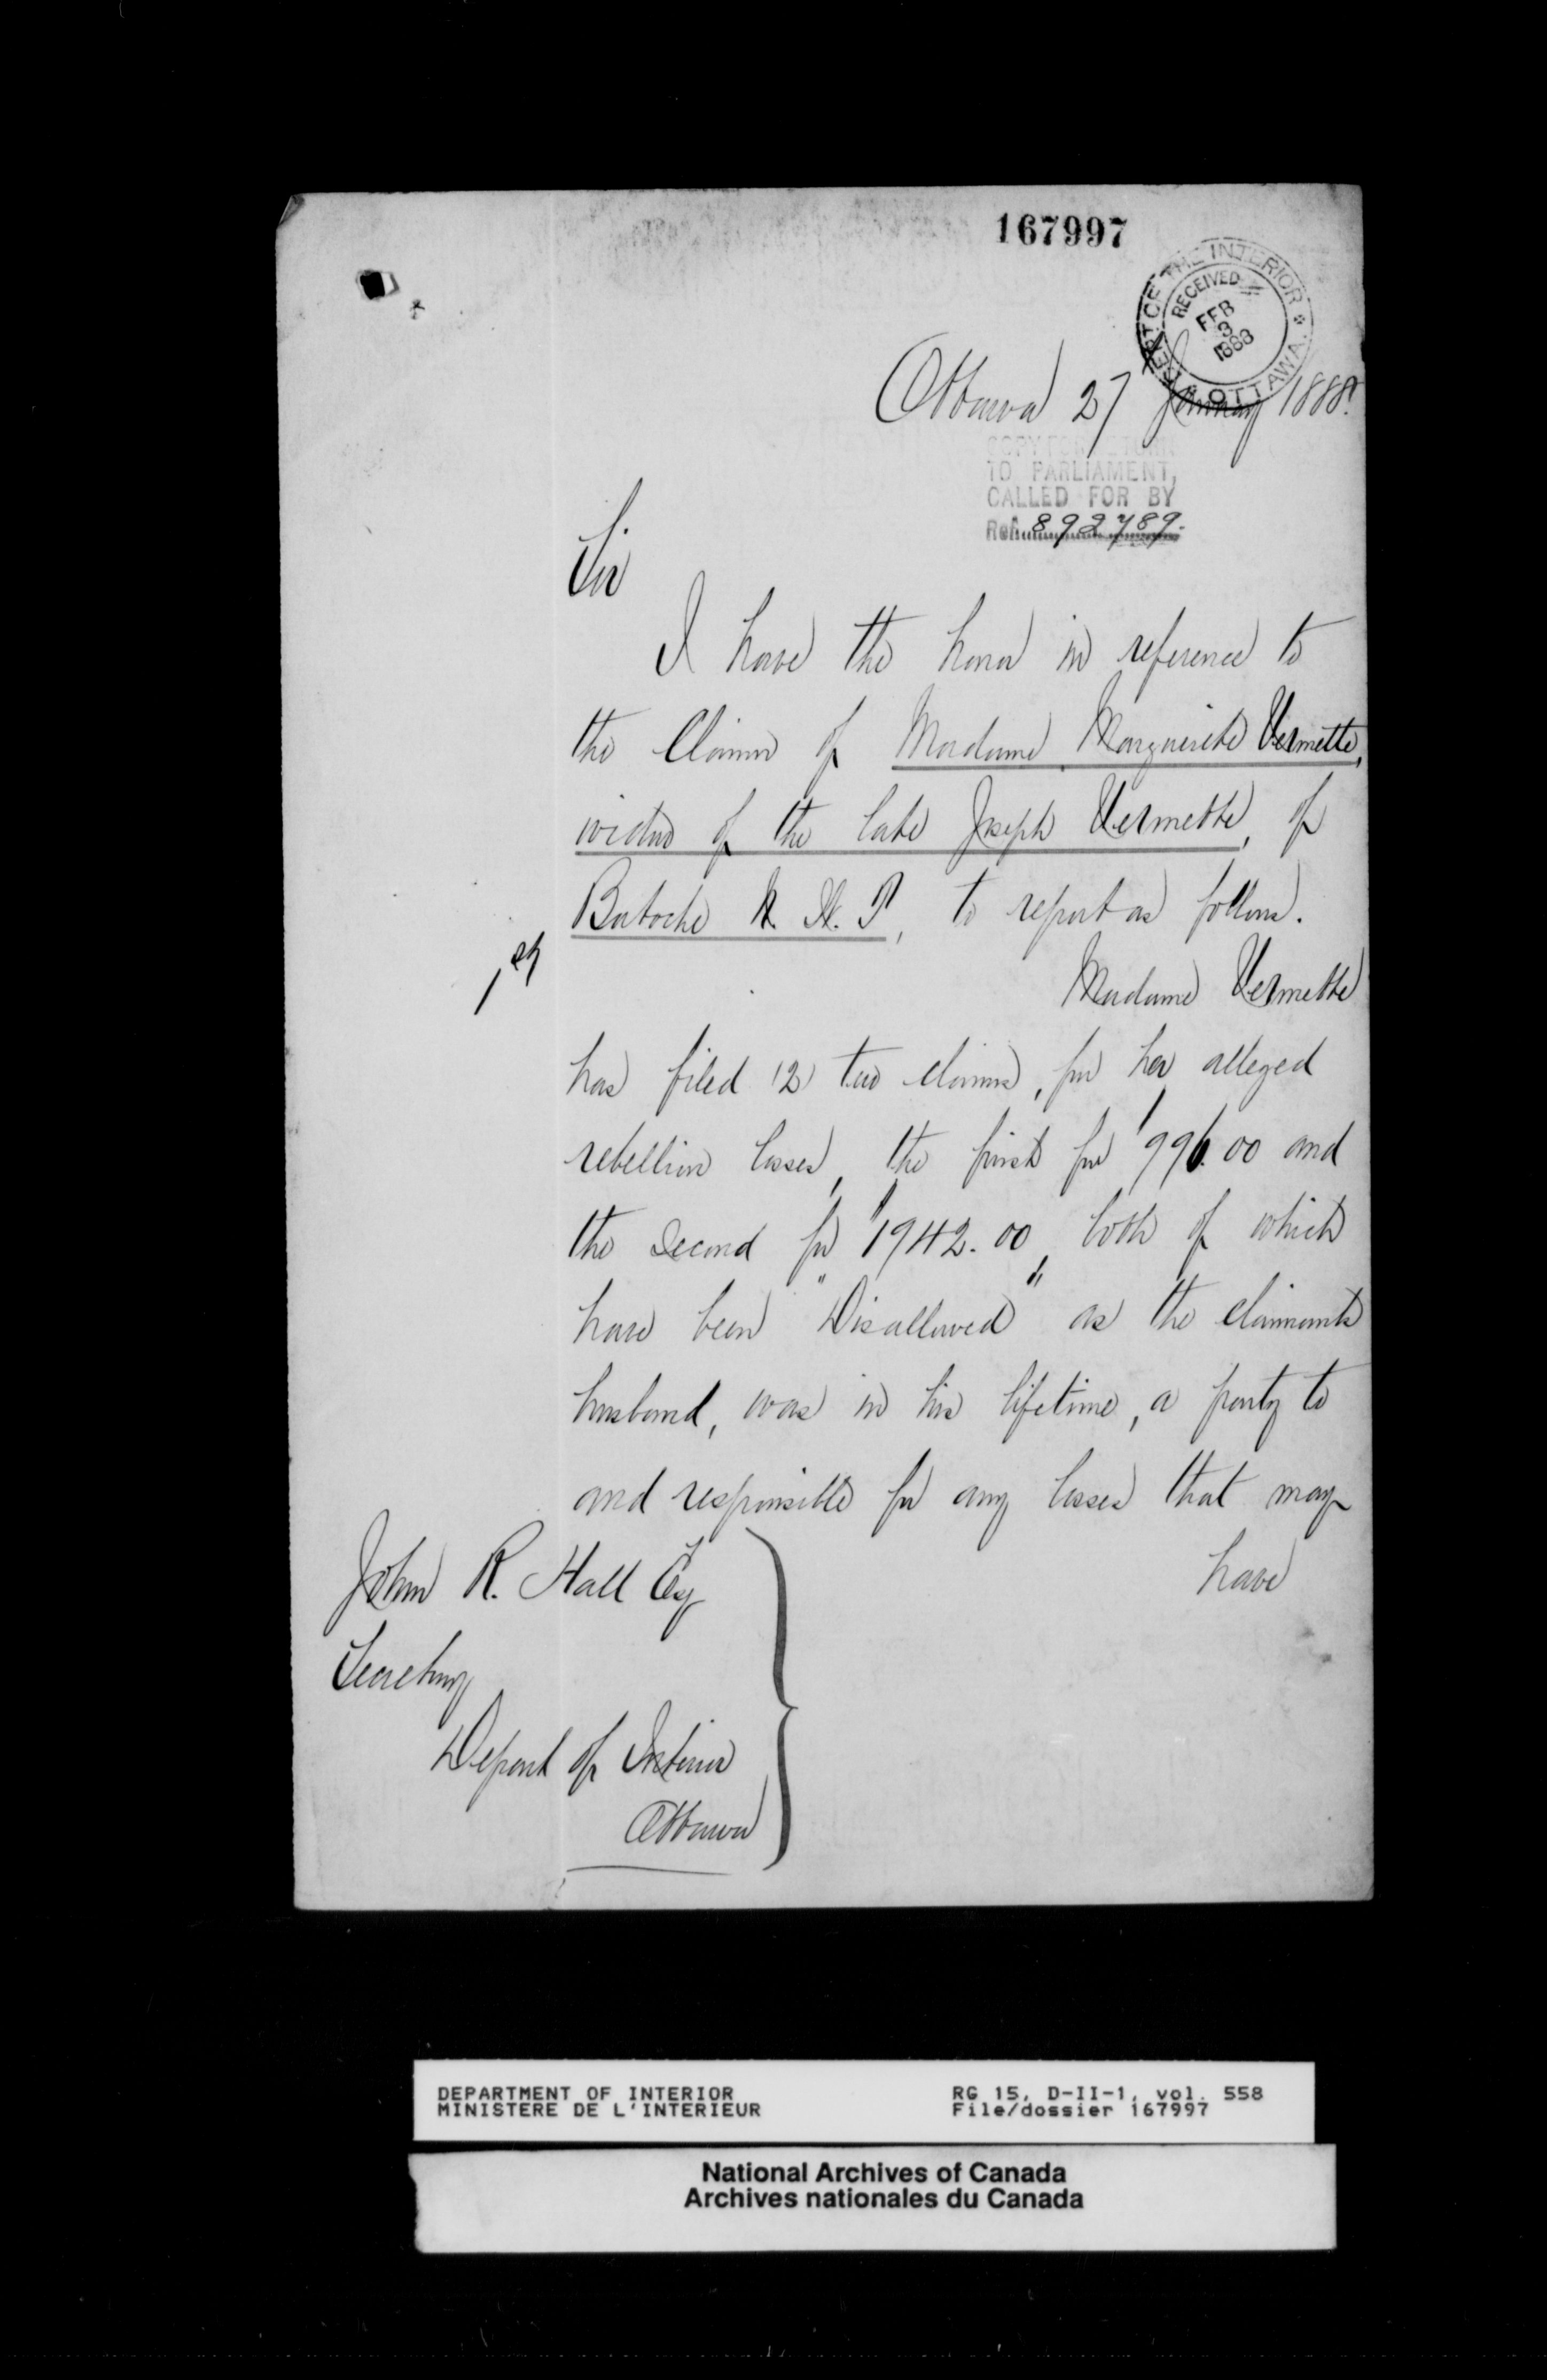 167997
DEPT. OF THE INTERIOR * OTTAWA.
RECEIVED
FEB
3
1888
Ottawa 27 January 1888.
COPY FOR RETURN
TO PARLIAMENT,
CALLED FOR BY
Ref. 892789.
Sir
I have the honor in reference to
the Claim of Madame Marguerite Vermette,
widow of the late Joseph Vermette, of
Batoche N. W. T, to report as follows.
1st
Madame Vermette
has filed (2) two claims, for her alleged
rebellion losses, the first for $996.00 and
the second for $1942.00, both of which
have been "Disallowed" as the claimants
husband, was in his lifetime, a party to
and responsible for any losses that may
have
John R. Hall Esq
Secretary
Depart of Interior
Ottawa
DEPARTMENT OF INTERIOR
MINISTERE DE L'INTERIEUR
RG 15, D-II-1, vol. 558
File/dossier 167997
National Archives of Canada
Archives nationales du Canada